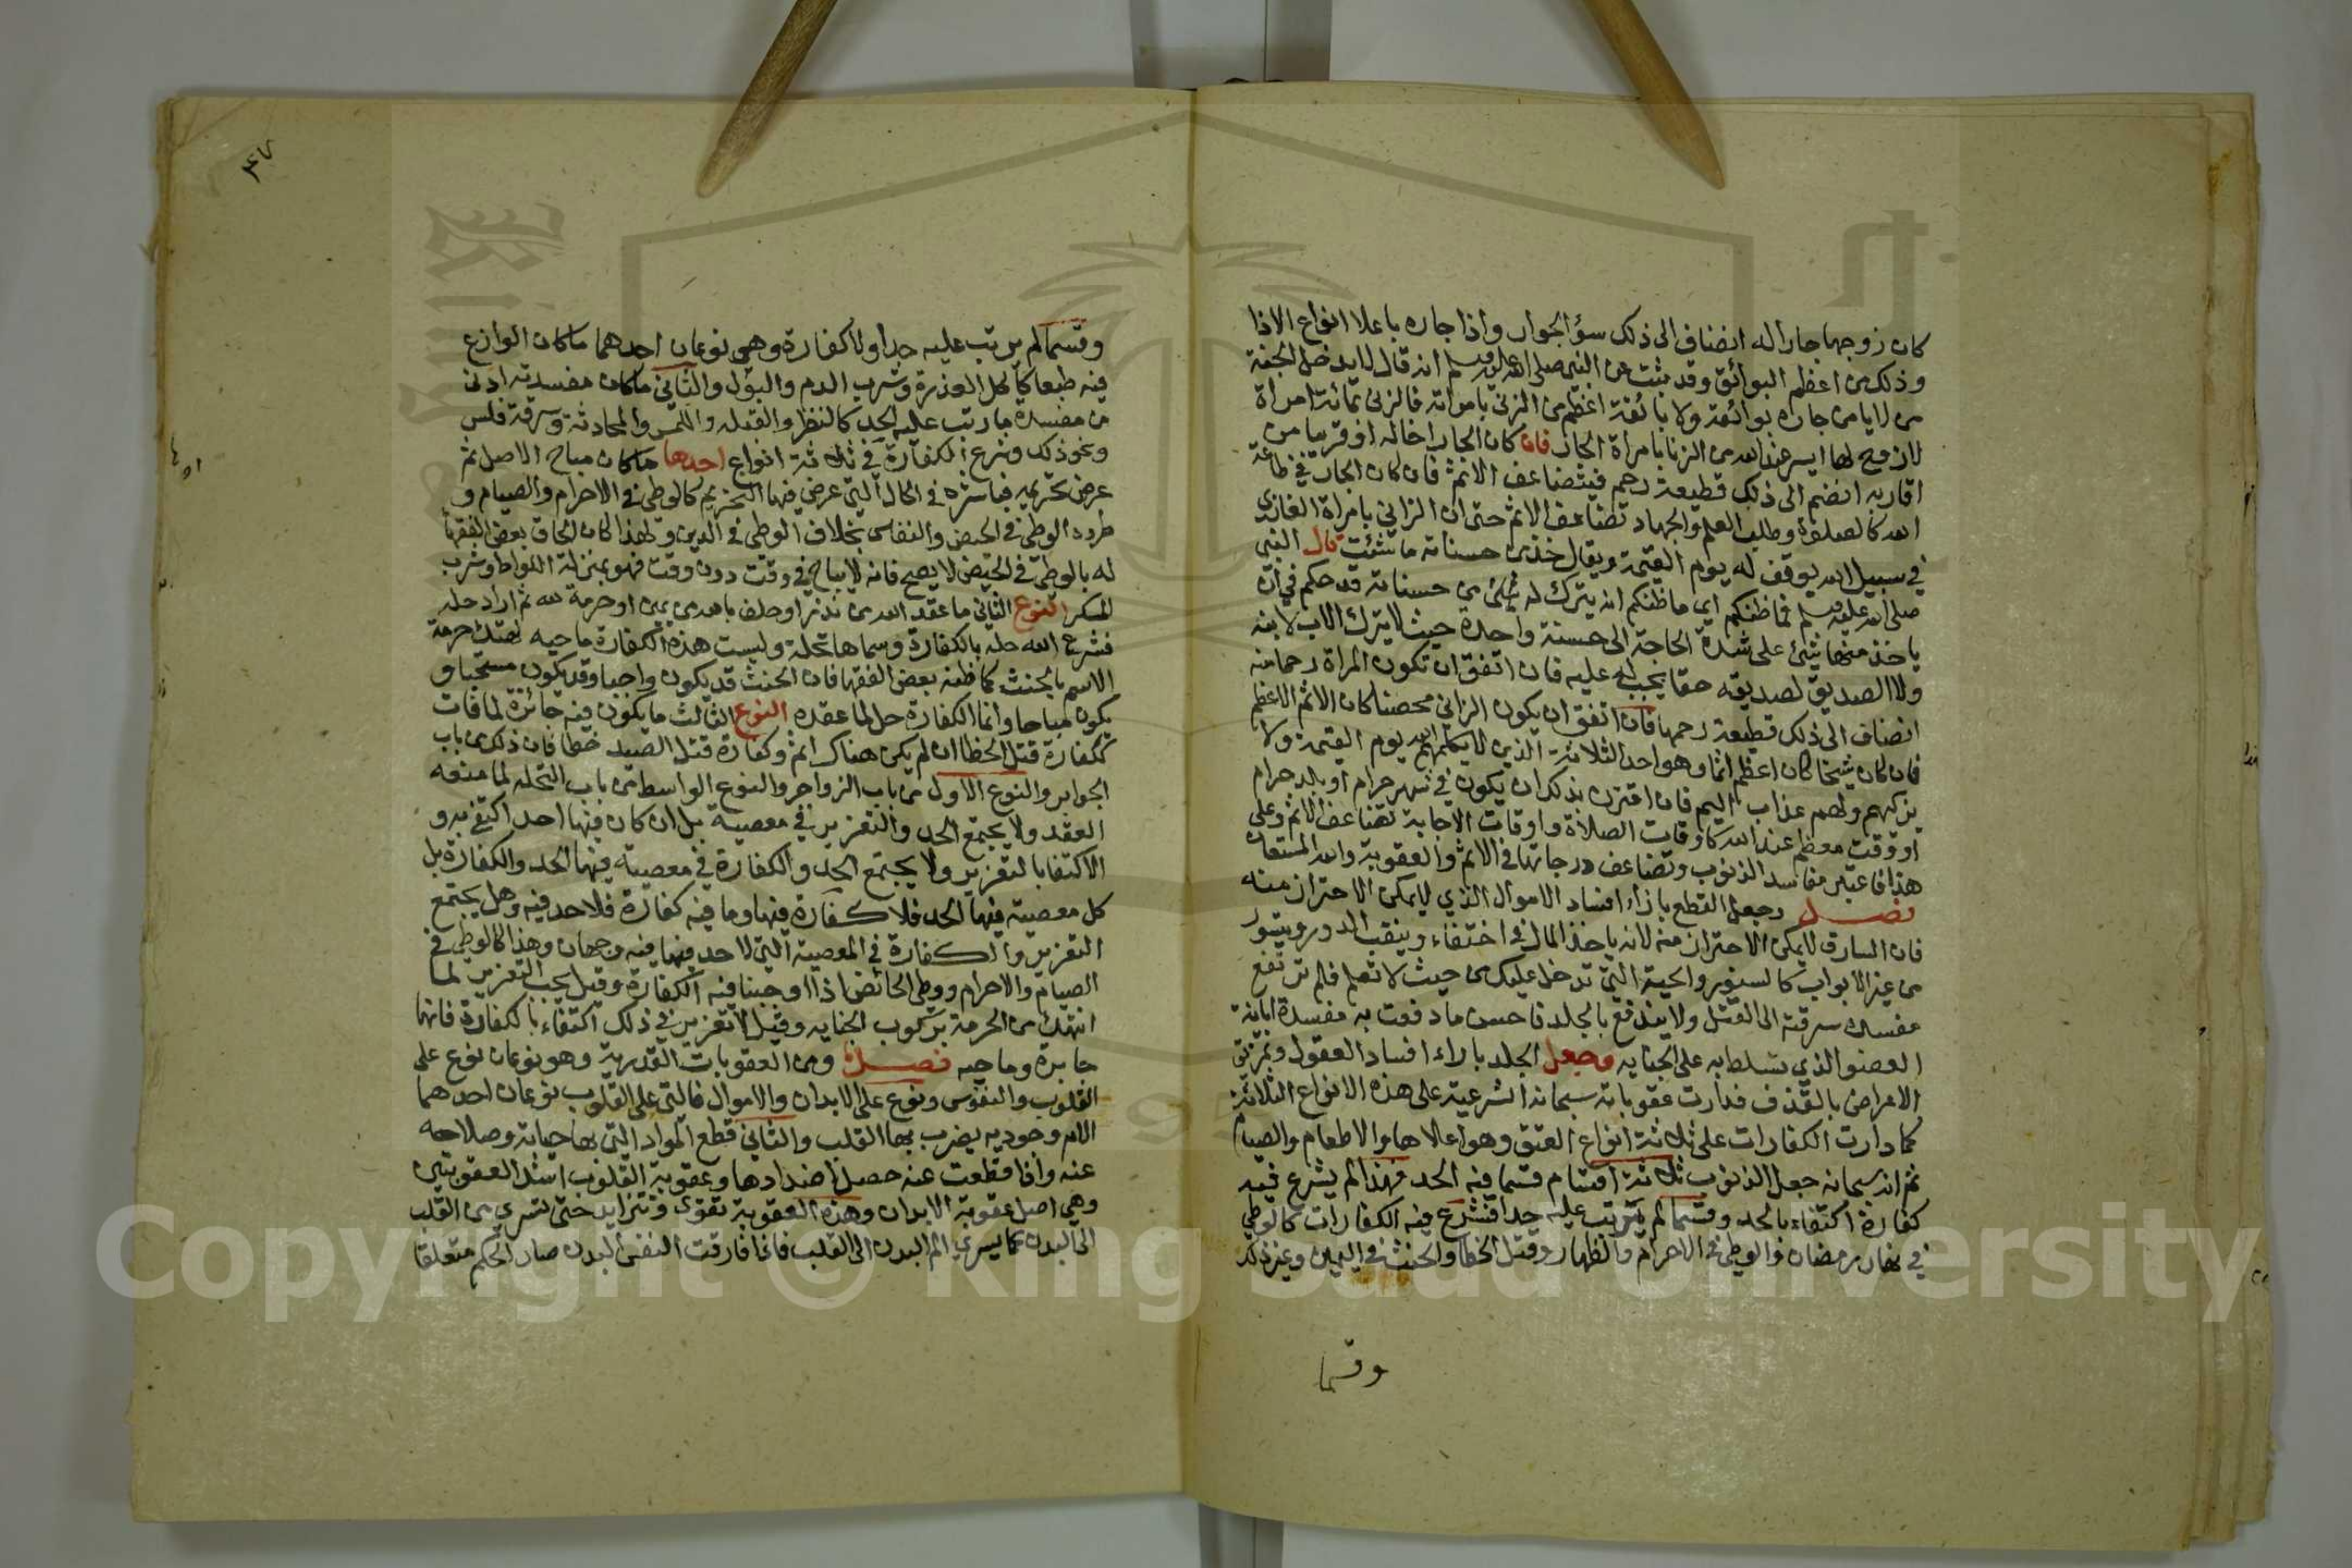 كان زوجها جارا له انضاف الى ذلك سؤ الجوار واذا جاره باعلا انواع الاذا
وذلك من اعظم البوائق وقد ثبت عن النبي صلى الله عليه وسلم انه قال لا يدخل الجنة
من لا يامن جاره بوائقه ولا بائقة اعظم من الزنى بامراته فالزنى بمائة امراة
لا زوج لها ايسر عند الله من الزنا بامراة الجار فان كان الجار اخا له او قريبا من
اقاربه انضم الى ذلك قطيعة رحم فيتضاعف الاثم فان كان الجار في طاعة
الله كالصلوة وطلب العلم والجهاد تضاعف الاثم حتى ان الزاني بامراة الغازي
في سبيل الله يوقف له يوم القيمة ويقال خذ من حسناته ما شئت قال النبي
صلى الله عليه وسلم فما ظنكم اي ما ظنكم انه يترك له شئ من حسناته قد حكم في ان
ياخذ منها شئ على شدة الحاجة الى حسنة واحدة حيث لا يترك الاب لابنه
ولا الصديق لصديقه حقا يجب له عليه فان اتفق ان تكون المراة رحما منه
انضاف الى ذلك قطيعة رحمها فان اتفق ان يكون الزاني محصنا كان الاثم الاعظم
فان كان شيخا كان اعظم اثما وهو احد الثلاثة الذين لا يكلمهم الله يوم القيمة ولا
يزكيهم ولهم عذاب اليم فان اقترن بذلك ان يكون في شهر حرام او بلد حرام
او وقت معظم عند الله كاوقات الصلاة واوقات الاجابة تضاعف الاثم وعلى
هذا فاعتبر مفاسد الذنوب وتضاعف درجاتها في الاثم والعقوبة والله المستعان
فصل وجعل القطع بازاء افساد الاموال الذي لا يمكن الاحتراز منه
فان السارق لا يمكن الاحتراز منه لانه ياخذ المال في اختفاء وينقب الدور ويتسور
من غير الابواب كالسنور والحية التي تدخل عليك من حيث لا تعلم فلم ترتفع
مفسدة سرقته الى القتل ولا يندفع بالجلد فاحسن ما دفعت به مفسدة ابانة
العضو الذي تسلط به على الجنايه وجعل الجلد باراء افساد العقول وتمزيق
الاعراض بالقذف فدارت عقوباته سبحانه الشرعية على هذه الانواع الثلاثة
كما دارت الكفارات على ثلاثة انواع العتق وهو اعلاها والاطعام والصيام
ثم انه سبحانه جعل الذنوب ثلاثة اقسام قسما فيه الحد فهذا لم يشرع فيه
كفارة اكتفاء بالحد وقسما لم يترتب عليه حدا فشرع فيه الكفارات كالوطي
في نهار رمضان والوطي في الاحرام والظهار وقتل الخطا والحنث في اليمين وغير ذلك
وقسما
٤٧
وقسما لم يرتب عليه حدا ولا كفارة وهي نوعان احدهما ما كان الوازع
فيه طبعا كاكل العذرة وشرب الدم والبول والثاني ما كان مفسدته ادنى
من مفسدة ما رتب عليه الحد كالنظر والقبله واللمس والمحادثة وسرقة فلس
ونحو ذلك وشرع الكفارة في ثلاثة انواع احدها ما كان مباح الاصل ثم
عرض تحريمه فباشره في الحال التي عرض فيها التحريم كالوطي في الاحرام والصيام و
طرده الوطي في الحيض والنفاس بخلاف الوطي في الدبر ولهذا كان الحاق بعض الفقها
له بالوطئ في الحيض لا يصح فانه لا يباح في وقت دون وقت فهو بمنزلة اللواط وشرب
المسكر النوع الثاني ما عقد الله من نذر او حلف بالله من يمين او حرمة لله ثم اراد حله
فشرع الله حله بالكفارة وسماها تحلة وليست هذه الكفارة ماحيه لهتك حرمة
الاسم بالحنث كما ظنه بعض الفقها فان الحنث قد يكون واجبا وقد يكون مستحبا و
يكون مباحا وانما الكفارة حل لما عقده النوع الثالث ما يكون فيه جائزة لما فات
ككفارة قتل الخطا ان لم يكن هناك اثم وكفارة قتل الصيد خطا فان ذلك من باب
الجوابر والنوع الاول من باب الزواجر والنوع الواسط من باب التحله لما منعه
العقد ولا يجتمع الحد والتعزير في معصية بل ان كان فيها احد اكتفي به و
الاكتفا بالتعزير ولا يجتمع الحد والكفارة في معصيته فيها الحد والكفارة بل
كل معصية فيها الحد فلا كفارة فيها وما فيه كفارة فلا حد فيه وهل يجتمع
التعزير والكفارة في المعصية التي لا حد فيها فيه وجهان وهذا كالوطي في
الصيام والاحرام ووطي الحائض اذا اوجبنا فيه الكفارة وقيل يجب التعزير لما
انتهك من الحرمة بركوب الجنايه وقيل لا تعزير في ذلك اكتفاء بالكفارة فانها
جابرة وماحيه فصل ومن العقوبات القدرية وهو نوعان نوع على
القلوب والنفوس ونوع على الابدان والاموال فالتي على القلوب نوعان احدهما
الام وجوديه يضرب بها القلب والثاني قطع المواد التي بها حياته وصلاحه
عنه واذا قطعت عنه حصل اضدادها وعقوبة القلوب اشد العقوبتين
وهي اصل عقوبة الابدان وهذه العقوبة تقوى وتتزايد حتى تسري من القلب
الى البدن كما يسري الم البدن الى القلب فاذا فارقت النفس البدن صار الحكم متعلقا
Copyright © King Saud University